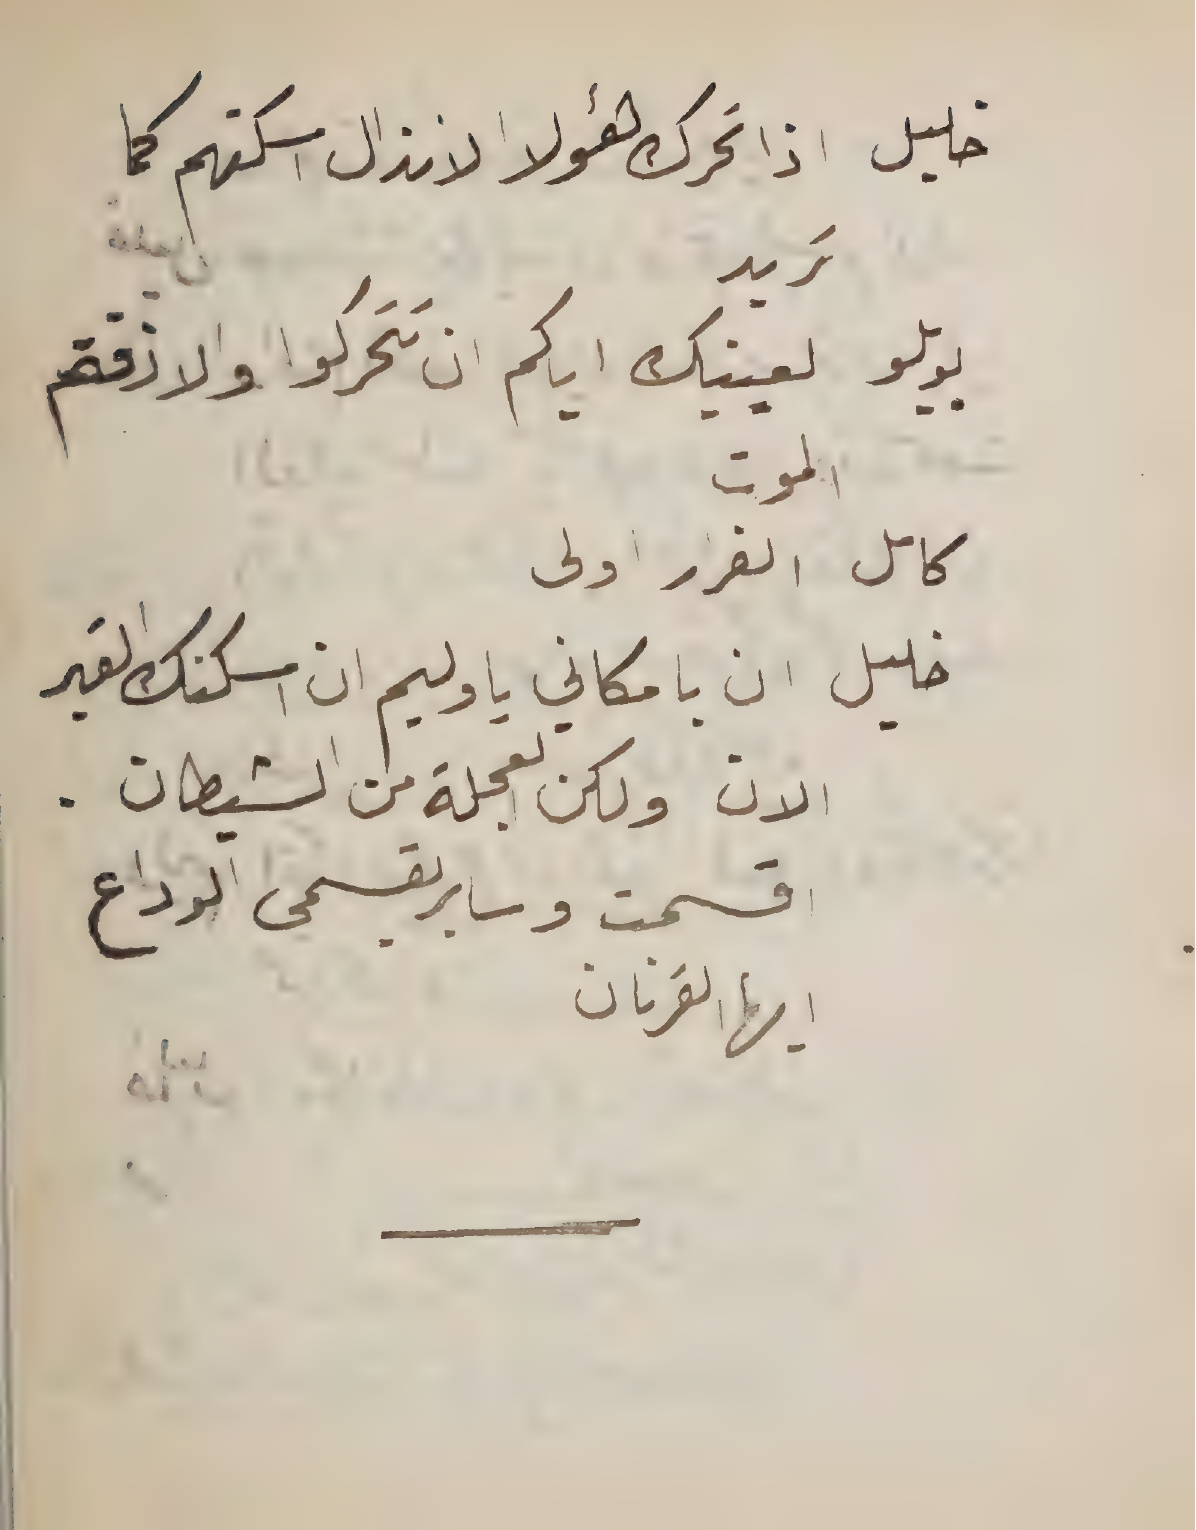 خليل اذا تحرك هؤلا الانذال اسكتهم كما
تريد
بويلو لعينيك اياكم ان تتحركوا والا ذقتم
الموت
كامل الفرار اولى
خليل ان بامكاني ياوليم ان اسكنك القبر
الان ولكن العجلة من الشيطان .
اقسمت وسابر بقسمى الوداع
ايها القرنان